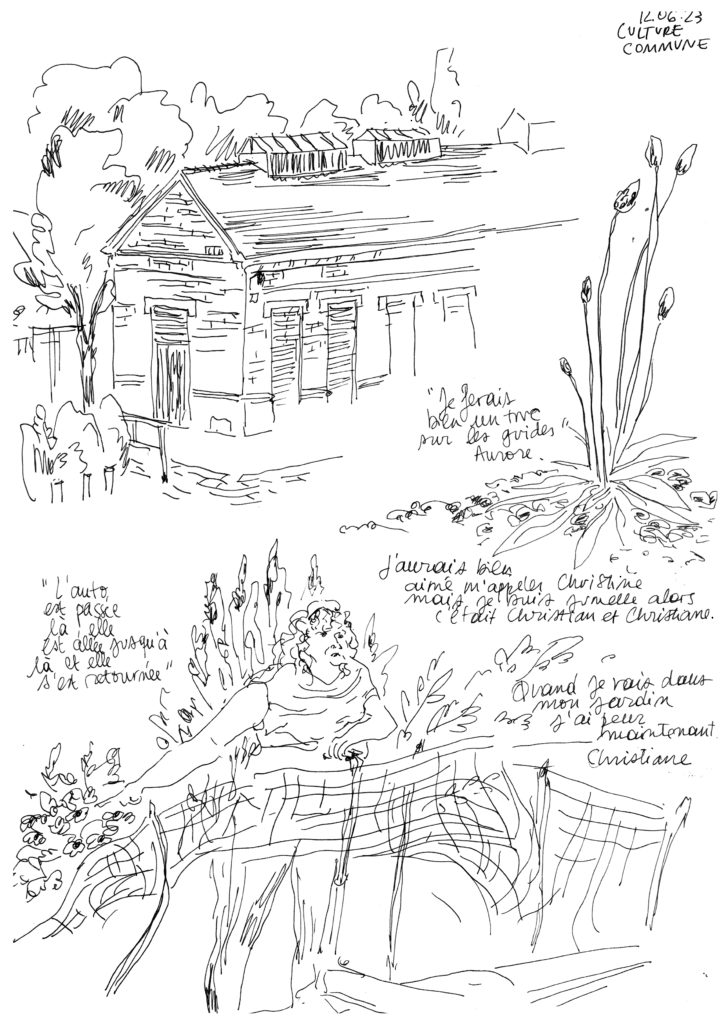 12.06.23
CULTURE
COMMUNE
"Je ferais
bien un truc
sur les guides"
Aurore.
J'aurais bien
aimé m'appeler Christine
mais je suis jumelle alors
c'était Christian et Christiane.
"L'auto,
est passée
là elle
est allée jusqu'à
là et elle
s'est retournée"
Quand je vais dans
mon jardin
j'ai peur
maintenant.
Christiane